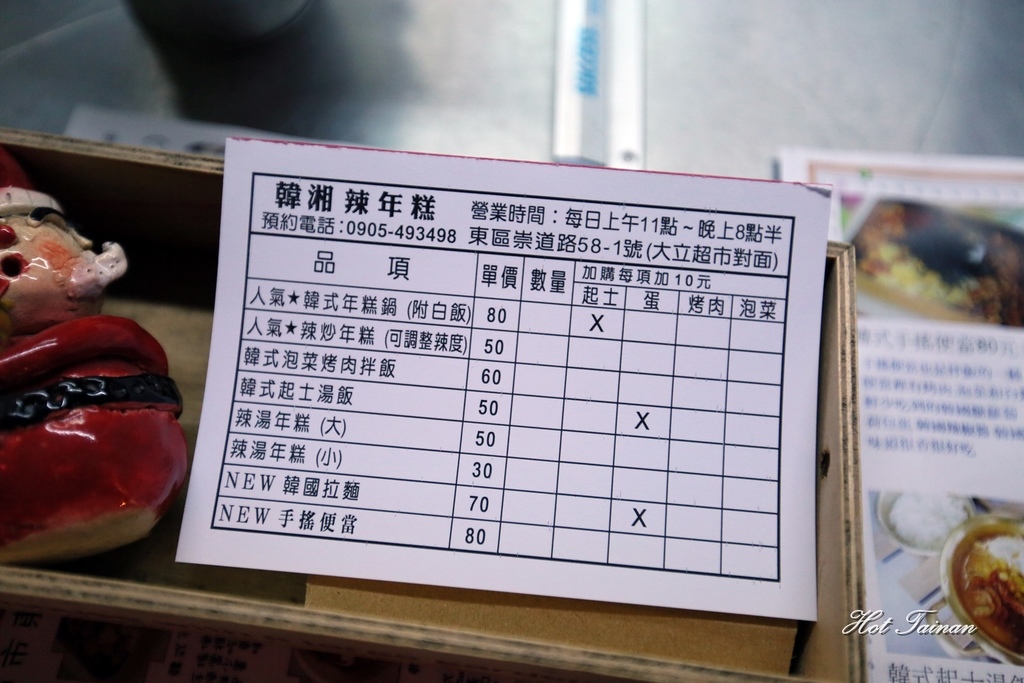 韓湘 辣年糕
營業時間：每日上午11點~晚上8點半
預約電話:0905-493498 東區崇道路58-1號(大立超市對面)
品項 單價 數量 加購每項加10元
起士 蛋 烤肉 泡菜
人氣★韓式年糕鍋 (附白飯) 80 X
人氣★辣炒年糕 (可調整辣度) 50
韓式泡菜烤肉拌飯 60
韓式起士湯飯 50 X
辣湯年糕 (大) 50
辣湯年糕 (小) 30
NEW 韓國拉麵 70 X
NEW 手搖便當 80
韓式手搖便當80元
Hot Tainan
韓式起士湯飯